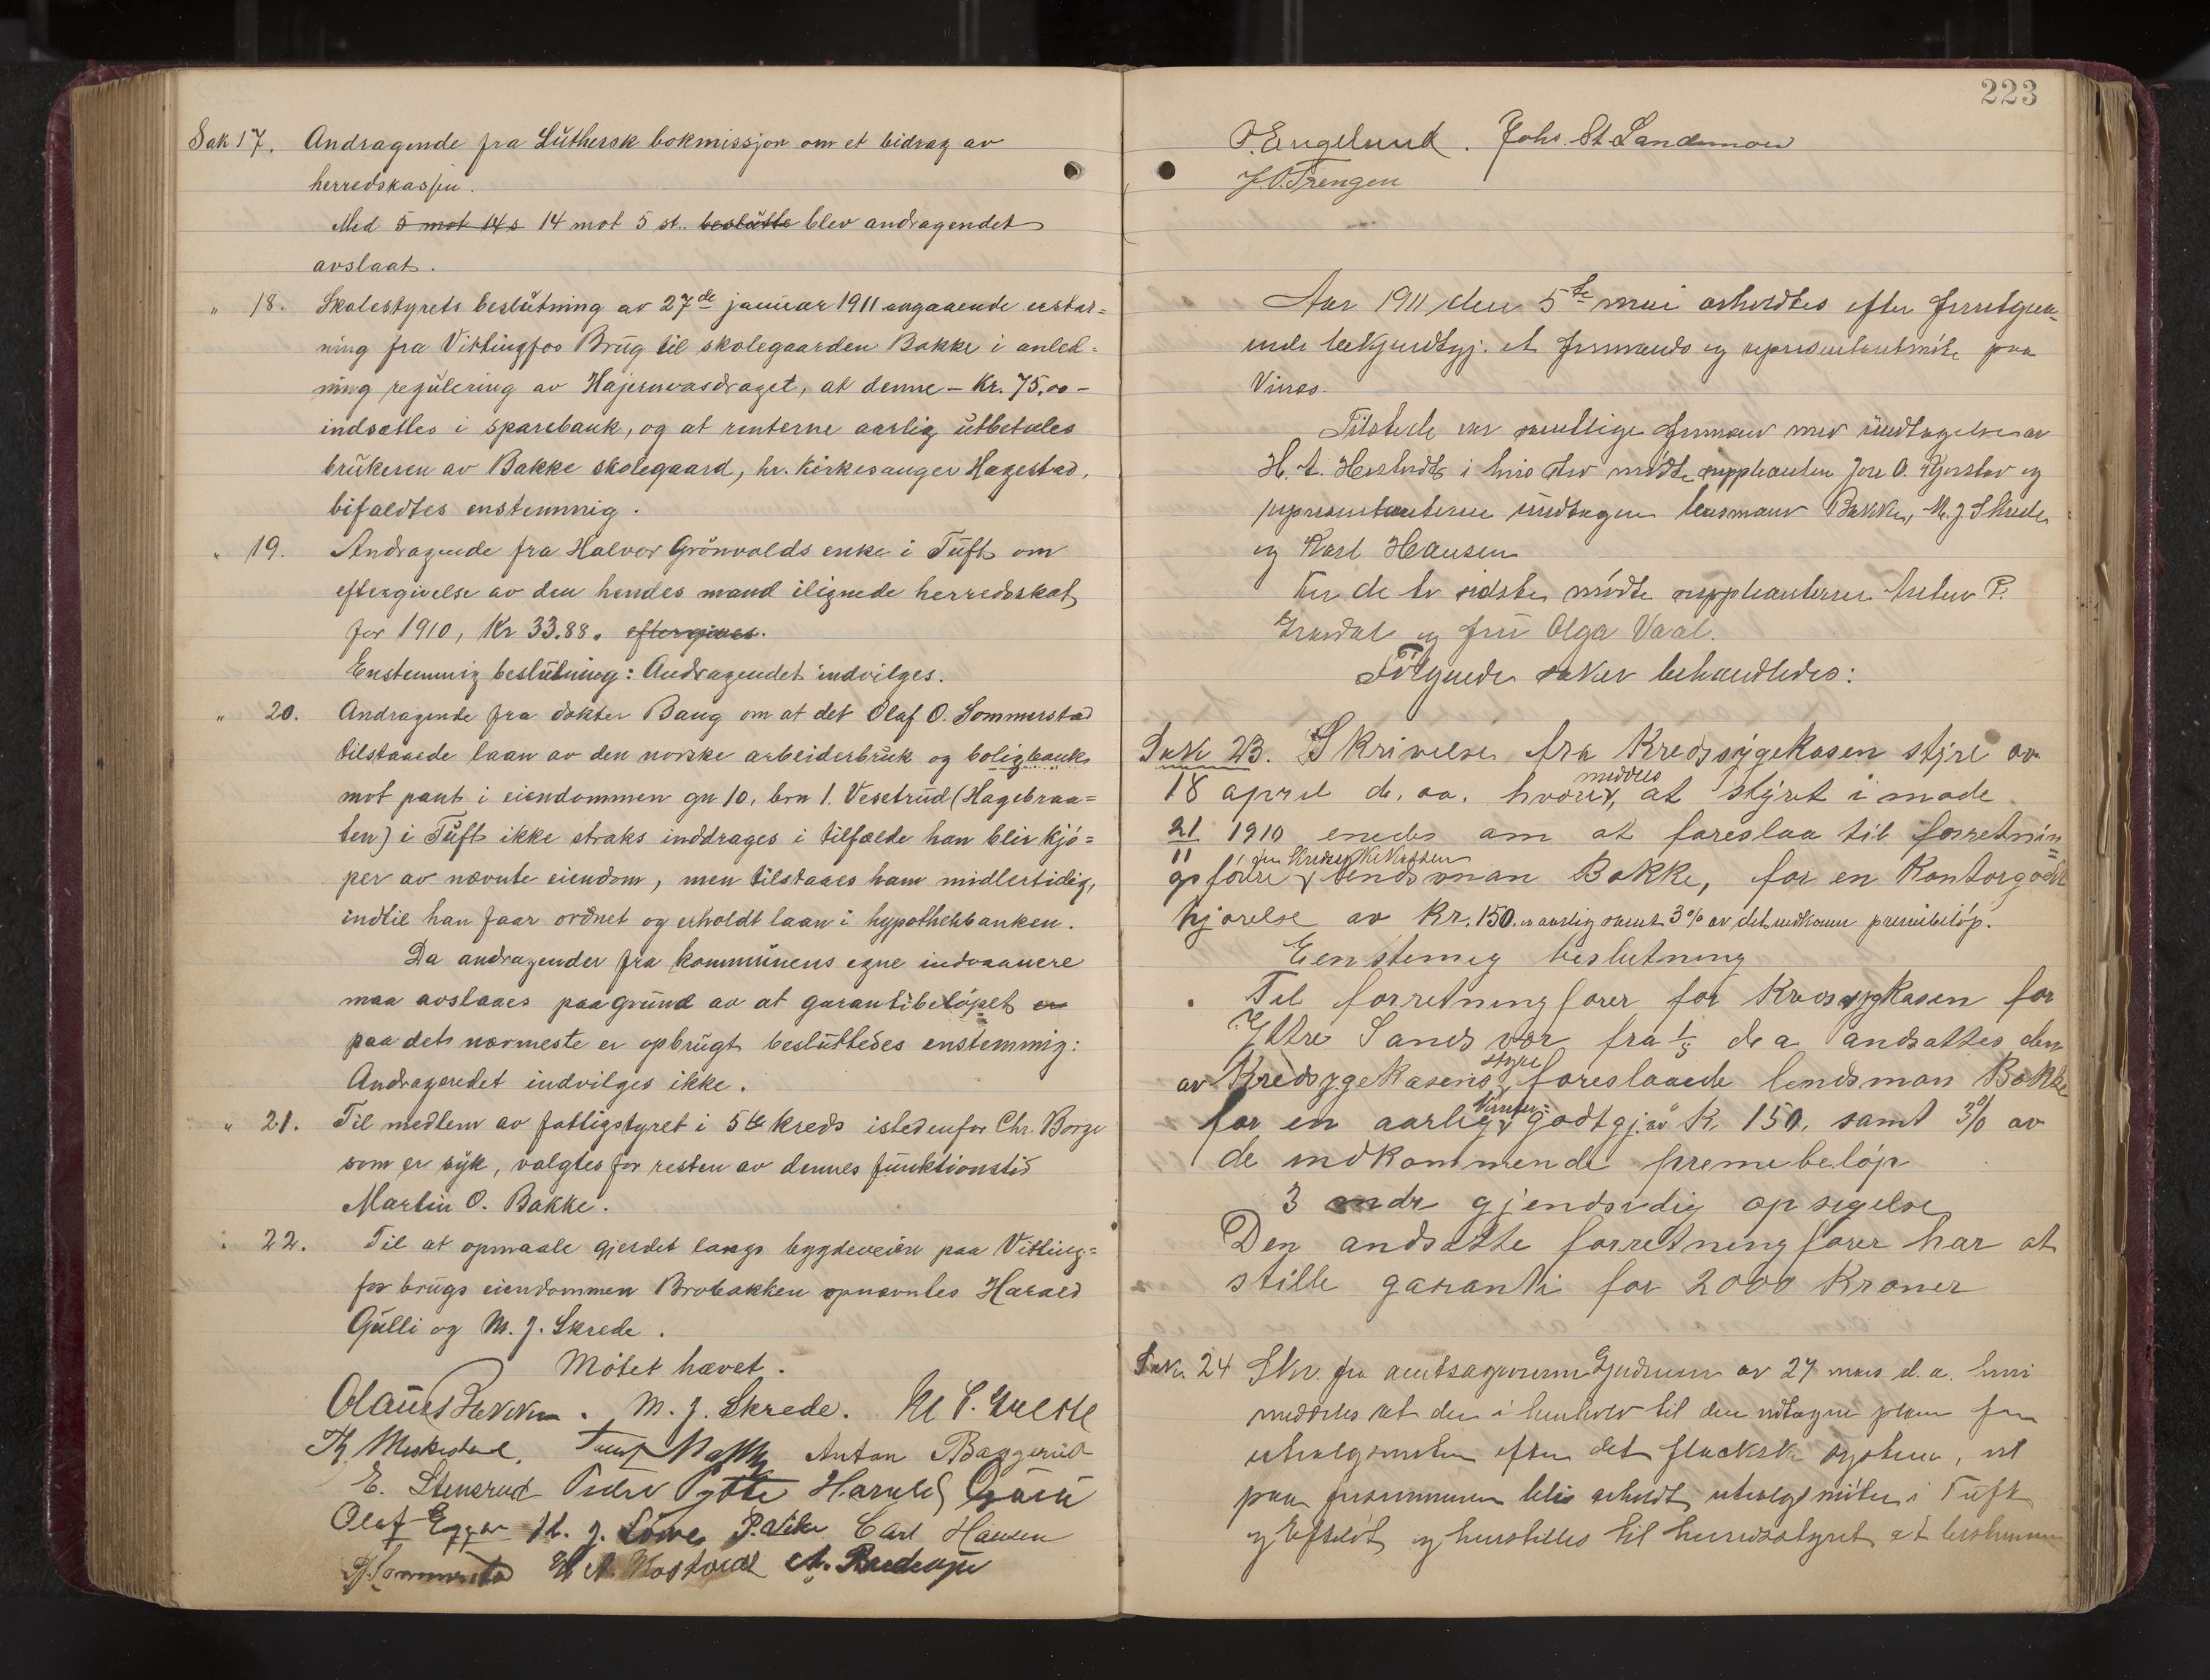 Sak 17. Andragende fra Luthersk bokmissjon om et bidrag av
herredskassen.
Med 5 mot 14 s 14 mot 5 st. beslutte blev andragendet
avslaat.
" 18. Skolestyrets beslutning av 27de januar 1911 angaaende erstat=
ning fra Vittingfos Brug til skolegaarden Bakke i anled=
ning regulering av Hajernvasdraget, at denne – Kr. 75,00 –
indsættes i sparebank, og at renterne aarlig utbetales
brukeren av Bakke skolegaard, hr. kirkesanger Hagestad,
bifaldtes enstemmig.
" 19. Andragende fra Halvor Grönvolds enke i Tuft om
eftergivelse av den hendes mand ilignede herredsskat
for 1910, Kr 33.88. eftergives.
Enstemmig beslutning: Andragendet indvilges.
" 20. Andragende fra dokter Baug om at det Olaf O. Sommerstad
tilstaaede laan av den norske arbeiderbruk og boligbank
mot pant i eiendommen gn 10, brn 1. Vesetrud (Hagebraa=
ten) i Tuft ikke straks inddrages i tilfælde han blir kjö=
per av nævnte eiendom, men tilstaaes ham midlertidig,
indtil han faar ordnet og erholdt laan i hypothekbanken.
Da andragender fra kommunens egne indvaanere
maa avslaaes paa grund av at garantibelöpet er
paa det nærmeste er opbrugt besluttedes enstemmig:
Andragendet indvilges ikke.
" 21. Til medlem av fattigstyret i 5te kreds istedenfor Chr. Borge
som er syk, valgtes for resten av dennes funktionstid
Martin O. Bakke.
" 22. Til at opmaale gjerdet langs bygdeveien paa Vitting=
fos brugs eiendommen Brobakken opnævntes Harald
Gulli og M. J. Skrede.
Mötet hævet.
Olaus Bakken. M. J. Skrede.
Th. Anton Baggerud
E. Stensrud Peder Harald
Olaf J. P. Vike Carl Hansen
223
O. Engelund. Johs. St.
J. O. Trengen
Aar 1911 den 5te mai avholdtes efter forutgaa=
ende bekjendtgj. et formands og representantmöte paa
Vinæs.
Tilstede var samtlige formænd med undtagelse av
H. A. i hvis sted mödte suppleanten Jon O. og
representanterne undtagen lensmand Bakke, M. J. Skrede
og Karl Hansen
For de to sidste mödte suppleanterne Anton P.
og fru Olga Vaal.
Fölgende saker behandledes:
Sak 23. Skrivelse fra Kredssygekasen styre av
18 april d. aa. hvori meddeles at styret i möde
21/11 1910 enedes om at foreslaa til forretnin=
gsförer lendsman Bakke, for en Kontorgodt
hjörelse av Kr. 150.00 aarlig samt 3% av det indkomne premiebelöp.
Eenstemig beslutning
Til forretningförer for Kredssygekasen for
Yttre Sandsvær fra 1/5 d a andsattes den
av Kredsygekasens styre foreslaaede lendsman Bakke
for en aarlig Kontor= godtgj. av Kr. 150, samt 3% av
de indkommende premebelöp
3 mdr gjendsidig opsigelse
Den andsatte forretningförer har at
stille garanti for 2000 Kroner
Sak 24 Skr. fra av 27 mars d. a. hvori
meddeles at der i henhold til den utdragne plan for
efter det system, vil
paa bli avholdt i Tuft
og Efteløt og henstilles til herredsstyret at bestemme